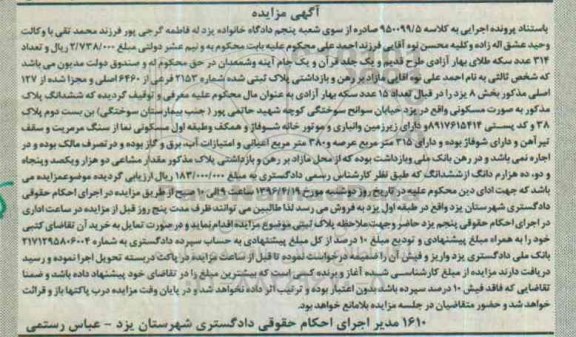 آگهی مزایده
باستناد پرونده اجرایی به کلاسه ۹۵۰۰۹۹/۵ صادره از سوی شعبه پنجم دادگاه خانواده یزد له فاطمه گرجی پور فرزند محمد تقی با وکالت
وحید عشق اله زاده وکلیه محسن نوه آقایی فرزند احمد علی محکوم علیه بابت محکوم به و نیم عشر دولتی مبلغ ۲/۷۳۸/۰۰۰ ریال و تعداد
۳۱۴ عدد سکه طلای بهار آزادی طرح قدیم و یک جلد قرآن و یک جام آینه وشمعدان در حق محکوم له و صندوق دولت مدیون می باشد
که شخص ثالثی به نام احمد علی نوه آقایی مازاد بر رهن و بازداشتی پلاک ثبتی شده شماره ۲۱۵۳ فرعی از ۶۴۶۰ اصلی و مجزا شده از ۱۲۷
اصلی مذکور بخش ۸ یزد را در قبال تعداد ۱۵ عدد سکه بهار آزادی به عنوان مال محکوم علیه معرفی و توقیف گردیده که ششدانگ پلاک
مذکور به صورت مسکونی واقع در یزد خیابان سوانح سوختگی کوچه شهید حاتمی پور ( جنب بیمارستان سوختگی) بن بست دوم پلاک
۳۸ و کد پستی ۸۹۱۷۶۱۵۴۱۴ و دارای زیرزمین وانباری و موتور خانه شوفاژ و همکف وطبقه اول مسکونی نما از سنگ مرمریت و سقف
تیر آهن و دارای شوفاژ بوده و دارای ۳۱۵ متر مربع عرصه و ۳۸۰ متر مربع اعیانی و امتیازات آب، برق و گاز بوده و در تصرف مالک بوده و در
اجاره نمی باشد و در رهن بانک ملی وبازداشت بوده که از محل مازاد بر رهن و بازداشتی پلاک مذکور مقدار مشاعی دو هزار ویکصد وپنجاه
و دو، ده هزارم دانگ ازششدانگ که طبق نظر کارشناس رسمی دادگستری به مبلغ ۱۸۳/۰۰۰/۰۰۰ ریال ارزیابی گردیده موضوعمزایده می
باشد که جهت ادای دین محکوم علیه در تاریخ روز دوشنبه مورخ ۱۳۹۶/۴/۱۹ ساعت ۹ الی ۱۰ صبح از طریق مزایده در اجرای احکام حقوقی
دادگستری شهرستان یزد واقع در طبقه اول یزد به فروش می رسد لذا طالبین می توانند ظرف مدت پنج روز قبل از مزایده در ساعت اداری
در اجرای احکام حقوقی پنجم یزد حاضر وجهت ملاحظه پلاک ثبتی موضوع مزایده اقدام نماید و در صورت تمایل به خرید آن تقاضای کتبی
خود را به همراه مبلغ پیشنهادی و تودیع مبلغ ۱۰ درصد از کل مبلغ پیشنهادی به حساب سپرده دادگستری به شماره ۲۱۷۱۲۹۵۸۰۶۰۰۴
بانک ملی دادگستری یزد واریز و فیش آن را ضمیمه درخواست نموده تا قبل از ساعت مزایده در پاکت دربسته تحویل اجرا نموده و رسید
دریافت دارند مزایده از مبلغ کارشناسی شده آغاز و برنده کسی است که بیشترین مبلغ را در تقاضای خود پیشنهاد داده باشد و ضمنا
تقاضایی که فاقد فیش ۱۰ درصد سپرده باشد بدون اعتبار بوده و ترتیب اثر داده نخواهد شد و در پایان وقت مزایده درب پاکتها باز و قرائت
خواهد شد و حضور متقاضیان در جلسه مزایده بلامانع خواهد بود.
۱۶۱۰ مدیر اجرای احکام حقوقی دادگستری شهرستان یزد - عباس رستمی